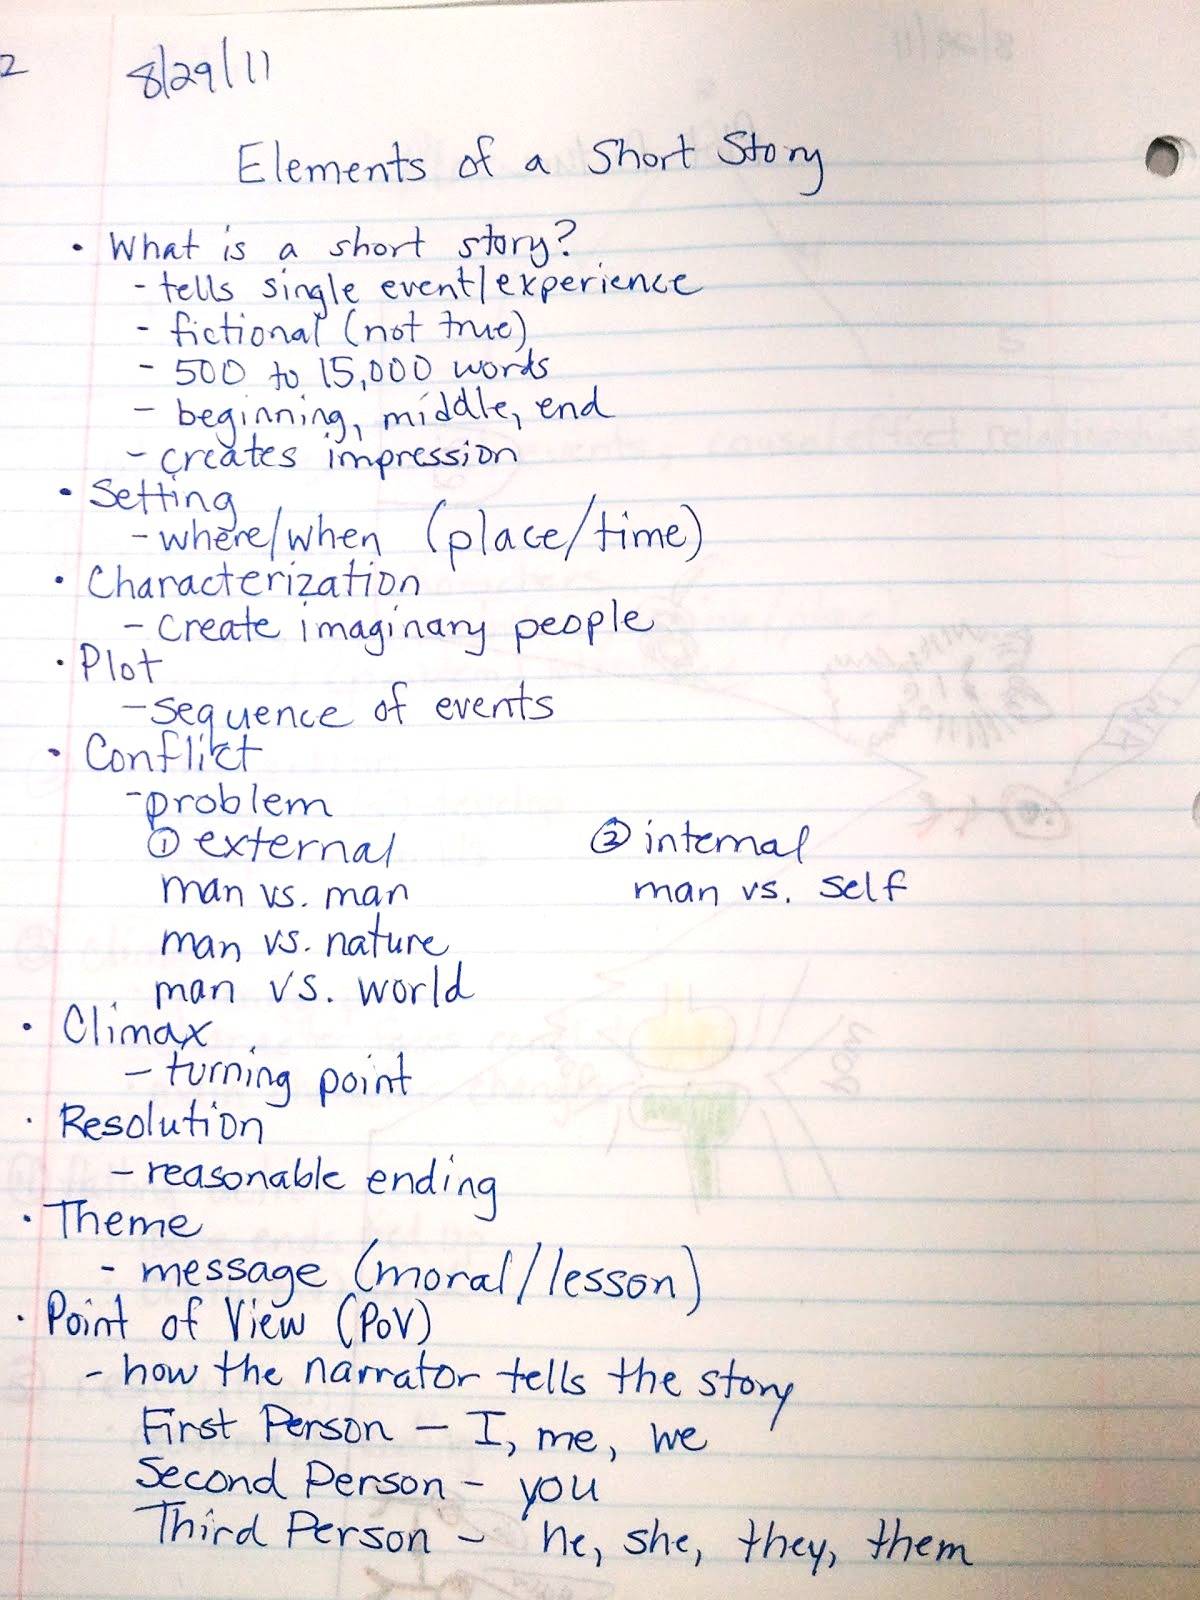 2
8/29/11
Elements of a Short Story
• What is a short story?
- tells single event/experience
- fictional (not true)
- 500 to 15,000 words
- beginning, middle, end
- creates impression
• Setting
- where/when (place/time)
• Characterization
- create imaginary people
• Plot
- sequence of events
• Conflict
- problem
① external ② internal
man vs. man man vs. self
man vs. nature
man vs. world
• Climax
- turning point
• Resolution
- reasonable ending
• Theme
- message (moral/lesson)
• Point of View (PoV)
- how the narrator tells the story
First Person - I, me, we
Second Person - you
Third Person - he, she, they, them